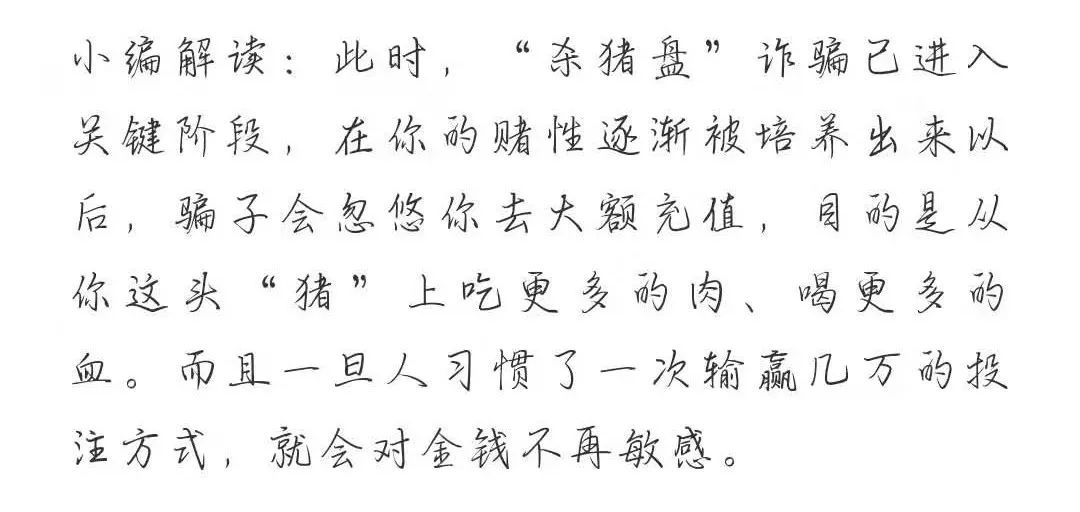 小编解读：此时，“杀猪盘”诈骗已进入
关键阶段，在你的赌性逐渐被培养出来以
后，骗子会忽悠你去大额充值，目的是从
你这头“猪”上吃更多的肉、喝更多的
血。而且一旦人习惯了一次输赢几万的投
注方式，就会对金钱不再敏感。